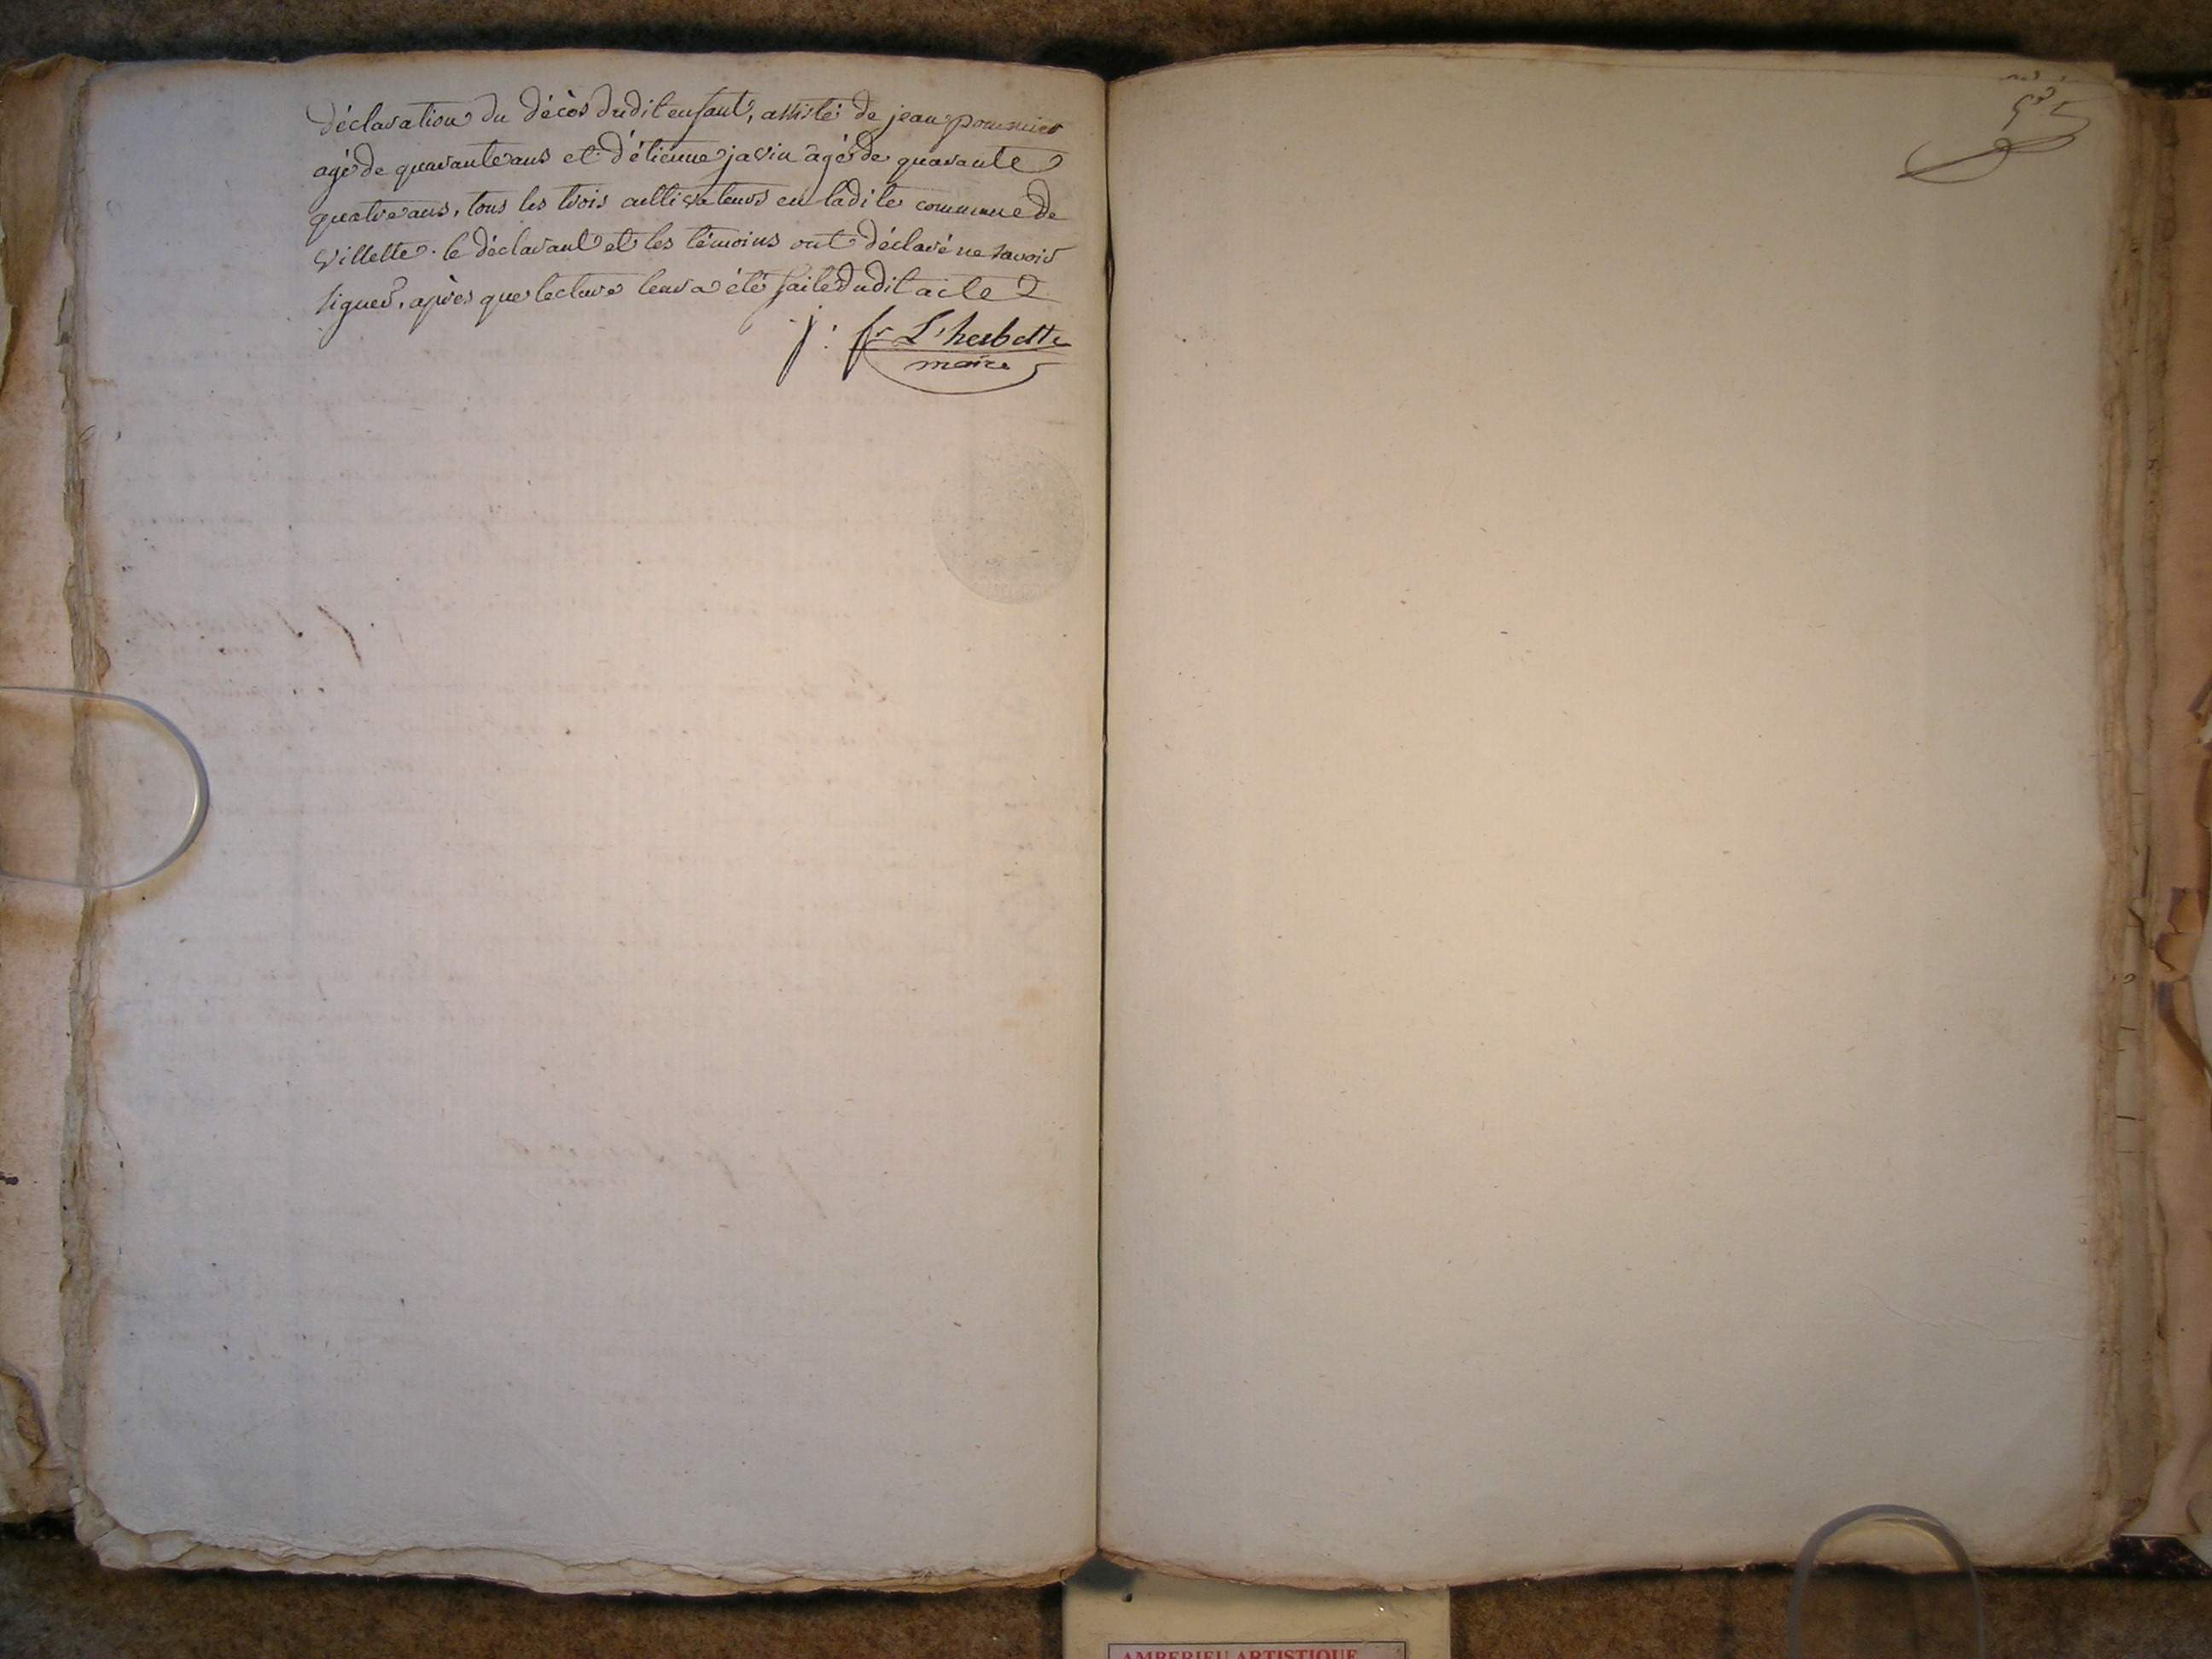 déclaration du décès dudit enfant, assisté de jean pommier
agé de quarante ans et d'étienne javin agé de quarante
quatre ans, tous les trois cultivateurs en ladite commune de
villette. le déclarant et les témoins ont déclaré ne savoir
signer, après que lecture leur a été faite dudit acte
j. fr L'herbette
maire
AMBERIEU ARTISTIQUE